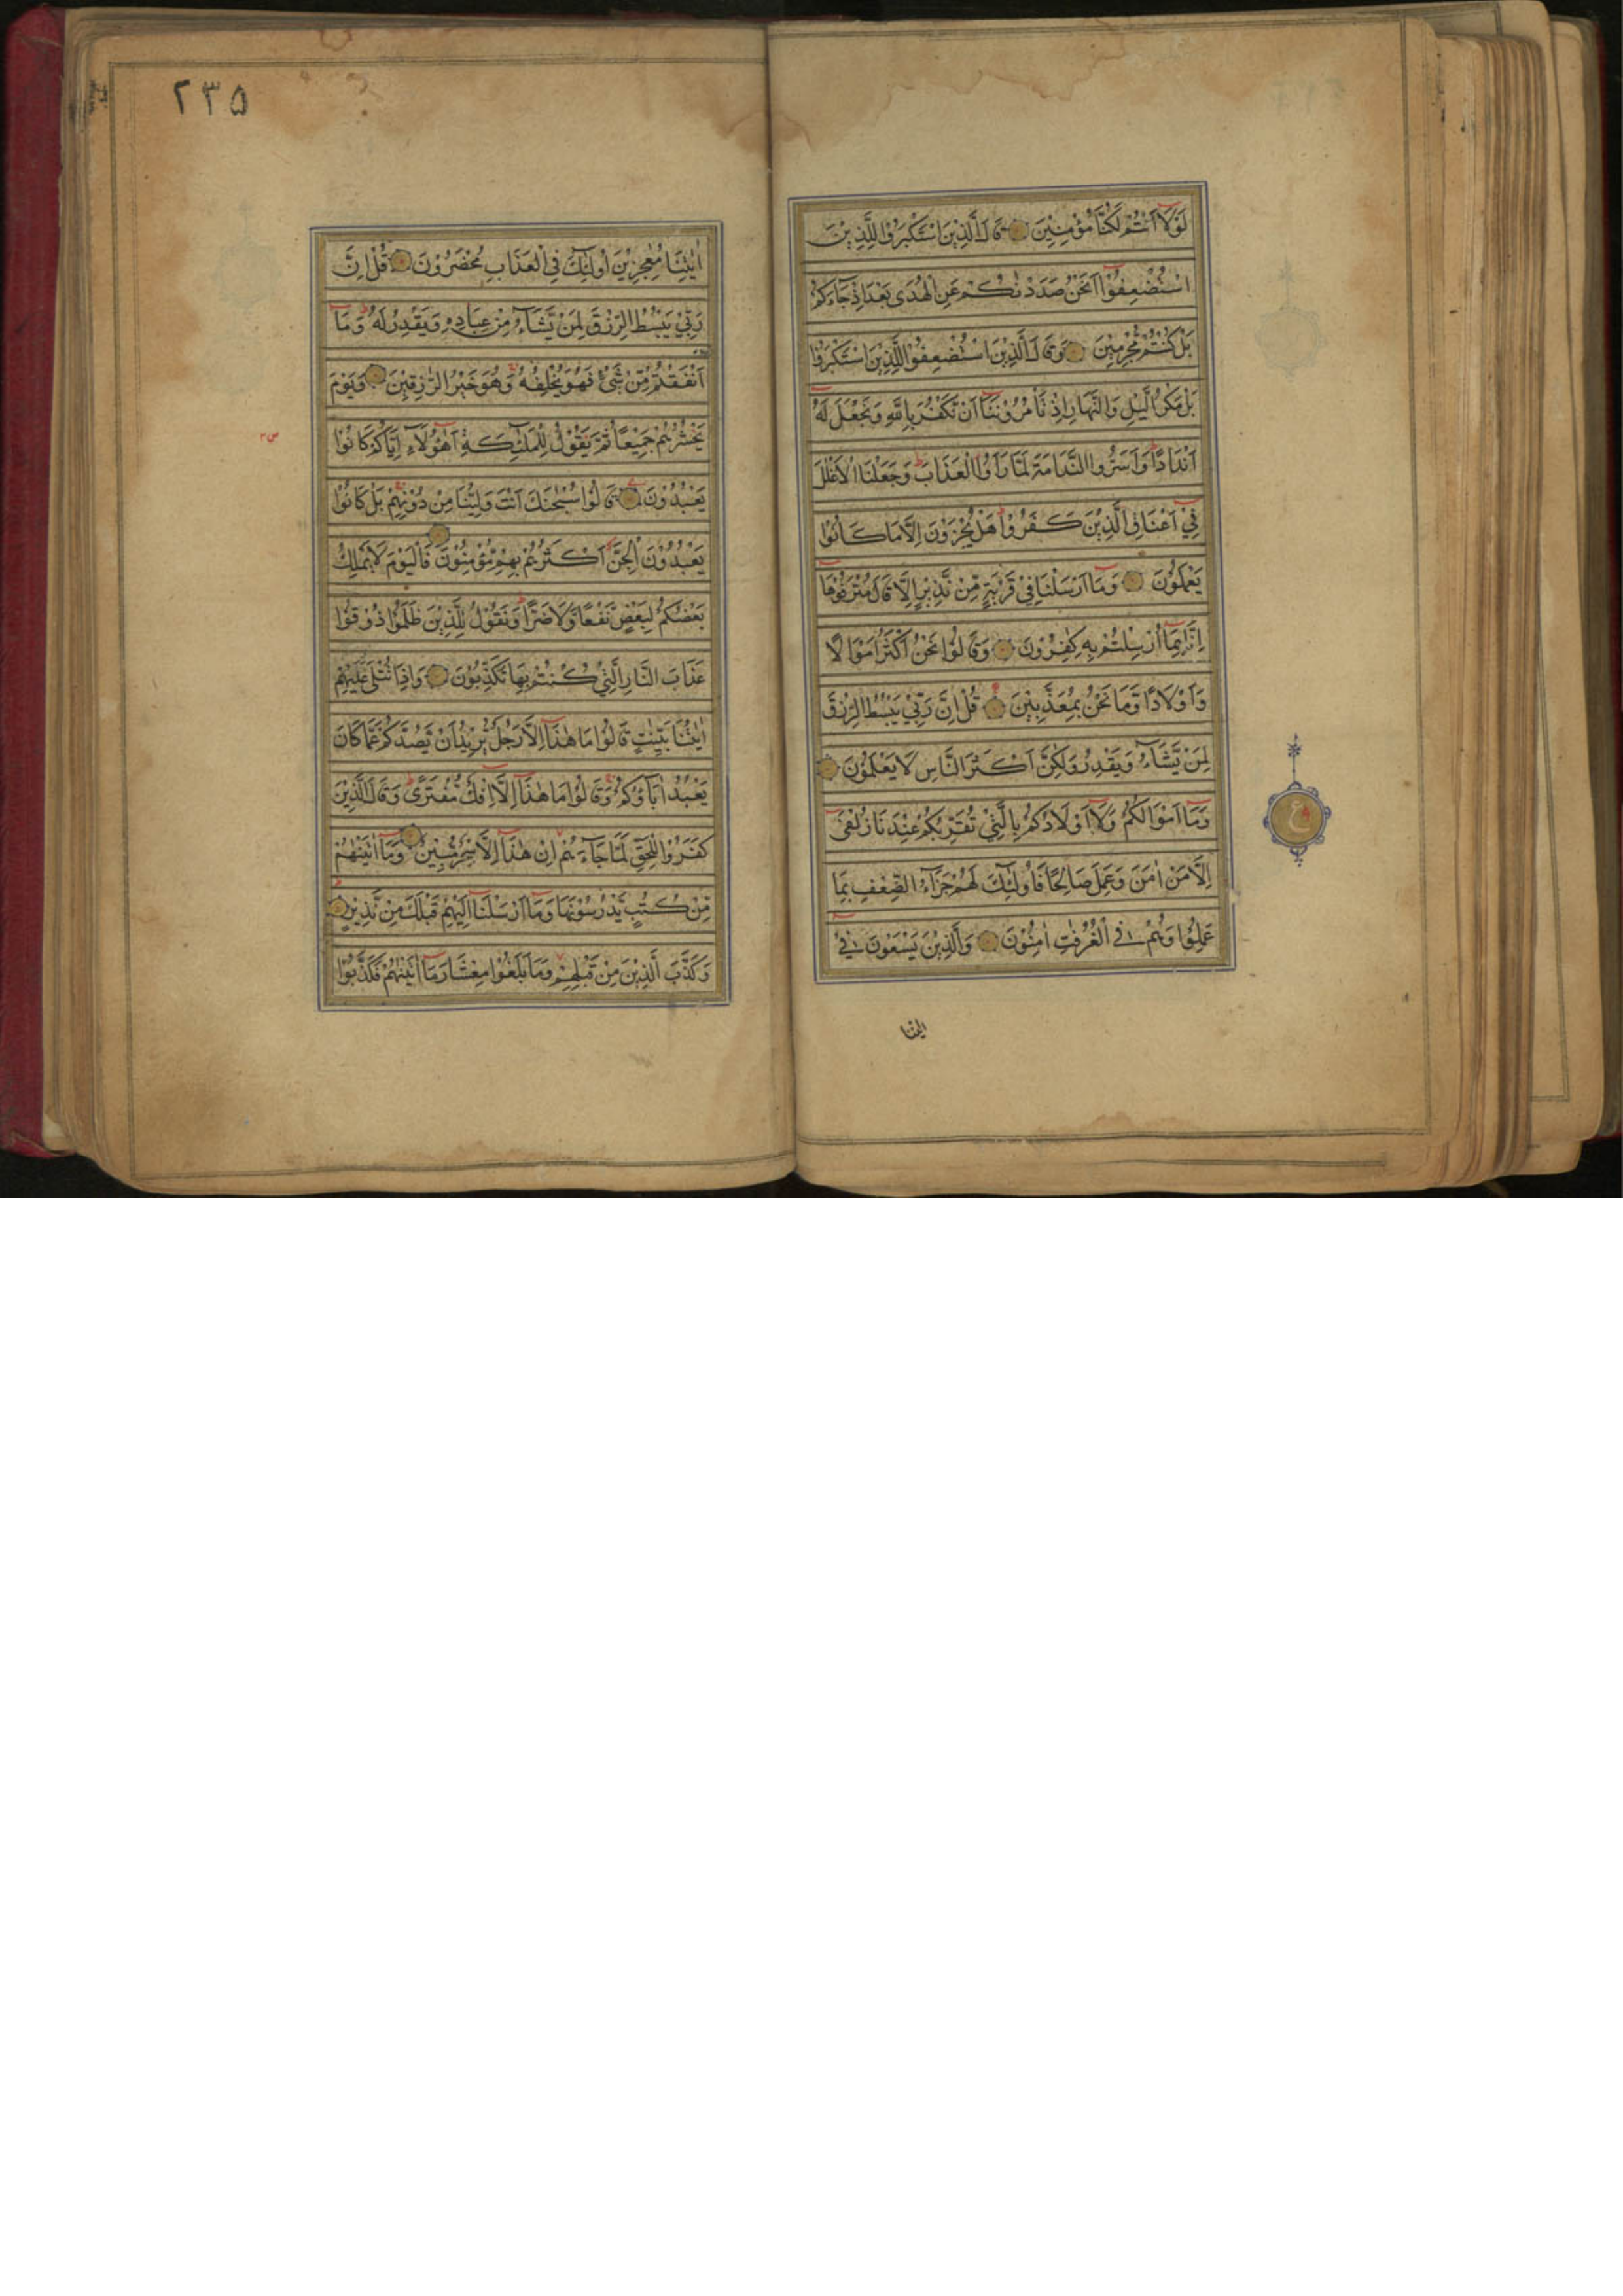 لَوْلَا اَنْتُمْ لَكُنَّا مُؤْمِنِيْنَ قَالَ الَّذِيْنَ اسْتَكْبَرُوْا لِلَّذِيْنَ
اسْتُضْعِفُوْا اَنَحْنُ صَدَدْنٰكُمْ عَنِ الْهُدٰى بَعْدَ اِذْ جَآءَكُمْ
بَلْ كُنْتُمْ مُّجْرِمِيْنَ وَقَالَ الَّذِيْنَ اسْتُضْعِفُوْا لِلَّذِيْنَ اسْتَكْبَرُوْا
بَلْ مَكْرُ الَّيْلِ وَالنَّهَارِ اِذْ تَاْمُرُوْنَنَا اَنْ نَّكْفُرَ بِاللّٰهِ وَنَجْعَلَ لَهٗ
اَنْدَادًا وَاَسَرُّوا النَّدَامَةَ لَمَّا رَاَوُا الْعَذَابَ وَجَعَلْنَا الْاَغْلٰلَ
فِيْ اَعْنَاقِ الَّذِيْنَ كَفَرُوْا هَلْ يُجْزَوْنَ اِلَّا مَا كَانُوْا
يَعْمَلُوْنَ وَمَا اَرْسَلْنَا فِيْ قَرْيَةٍ مِّنْ نَّذِيْرٍ اِلَّا قَالَ مُتْرَفُوْهَا
اِنَّا بِمَا اُرْسِلْتُمْ بِهٖ كٰفِرُوْنَ وَقَالُوْا نَحْنُ اَكْثَرُ اَمْوَالًا
وَّاَوْلَادًا وَّمَا نَحْنُ بِمُعَذَّبِيْنَ قُلْ اِنَّ رَبِّيْ يَبْسُطُ الرِّزْقَ
لِمَنْ يَّشَآءُ وَيَقْدِرُ وَلٰكِنَّ اَكْثَرَ النَّاسِ لَا يَعْلَمُوْنَ
وَمَا اَمْوَالُكُمْ وَلَا اَوْلَادُكُمْ بِالَّتِيْ تُقَرِّبُكُمْ عِنْدَنَا زُلْفٰى
اِلَّا مَنْ اٰمَنَ وَعَمِلَ صَالِحًا فَاُولٰٓئِكَ لَهُمْ جَزَآءُ الضِّعْفِ بِمَا
عَمِلُوْا وَهُمْ فِي الْغُرُفٰتِ اٰمِنُوْنَ وَالَّذِيْنَ يَسْعَوْنَ فِيْ
ع
٢٣٥
اٰيٰتِنَا مُعٰجِزِيْنَ اُولٰٓئِكَ فِي الْعَذَابِ مُحْضَرُوْنَ قُلْ اِنَّ
رَبِّيْ يَبْسُطُ الرِّزْقَ لِمَنْ يَّشَآءُ مِنْ عِبَادِهٖ وَيَقْدِرُ لَهٗ وَمَا
اَنْفَقْتُمْ مِّنْ شَيْءٍ فَهُوَ يُخْلِفُهٗ وَهُوَ خَيْرُ الرّٰزِقِيْنَ وَيَوْمَ
يَحْشُرُهُمْ جَمِيْعًا ثُمَّ يَقُوْلُ لِلْمَلٰٓئِكَةِ اَهٰٓؤُلَآءِ اِيَّاكُمْ كَانُوْا
يَعْبُدُوْنَ قَالُوْا سُبْحٰنَكَ اَنْتَ وَلِيُّنَا مِنْ دُوْنِهِمْ بَلْ كَانُوْا
يَعْبُدُوْنَ الْجِنَّ اَكْثَرُهُمْ بِهِمْ مُّؤْمِنُوْنَ فَالْيَوْمَ لَا يَمْلِكُ
بَعْضُكُمْ لِبَعْضٍ نَّفْعًا وَّلَا ضَرًّا وَنَقُوْلُ لِلَّذِيْنَ ظَلَمُوْا ذُوْقُوْا
عَذَابَ النَّارِ الَّتِيْ كُنْتُمْ بِهَا تُكَذِّبُوْنَ وَاِذَا تُتْلٰى عَلَيْهِمْ
اٰيٰتُنَا بَيِّنٰتٍ قَالُوْا مَا هٰذَا اِلَّا رَجُلٌ يُّرِيْدُ اَنْ يَّصُدَّكُمْ عَمَّا كَانَ
يَعْبُدُ اٰبَآؤُكُمْ وَقَالُوْا مَا هٰذَا اِلَّا اِفْكٌ مُّفْتَرًى وَقَالَ الَّذِيْنَ
كَفَرُوْا لِلْحَقِّ لَمَّا جَآءَهُمْ اِنْ هٰذَا اِلَّا سِحْرٌ مُّبِيْنٌ وَمَا اٰتَيْنٰهُمْ
مِّنْ كُتُبٍ يَّدْرُسُوْنَهَا وَمَا اَرْسَلْنَا اِلَيْهِمْ قَبْلَكَ مِنْ نَّذِيْرٍ
وَكَذَّبَ الَّذِيْنَ مِنْ قَبْلِهِمْ وَمَا بَلَغُوْا مِعْشَارَ مَا اٰتَيْنٰهُمْ فَكَذَّبُوْا